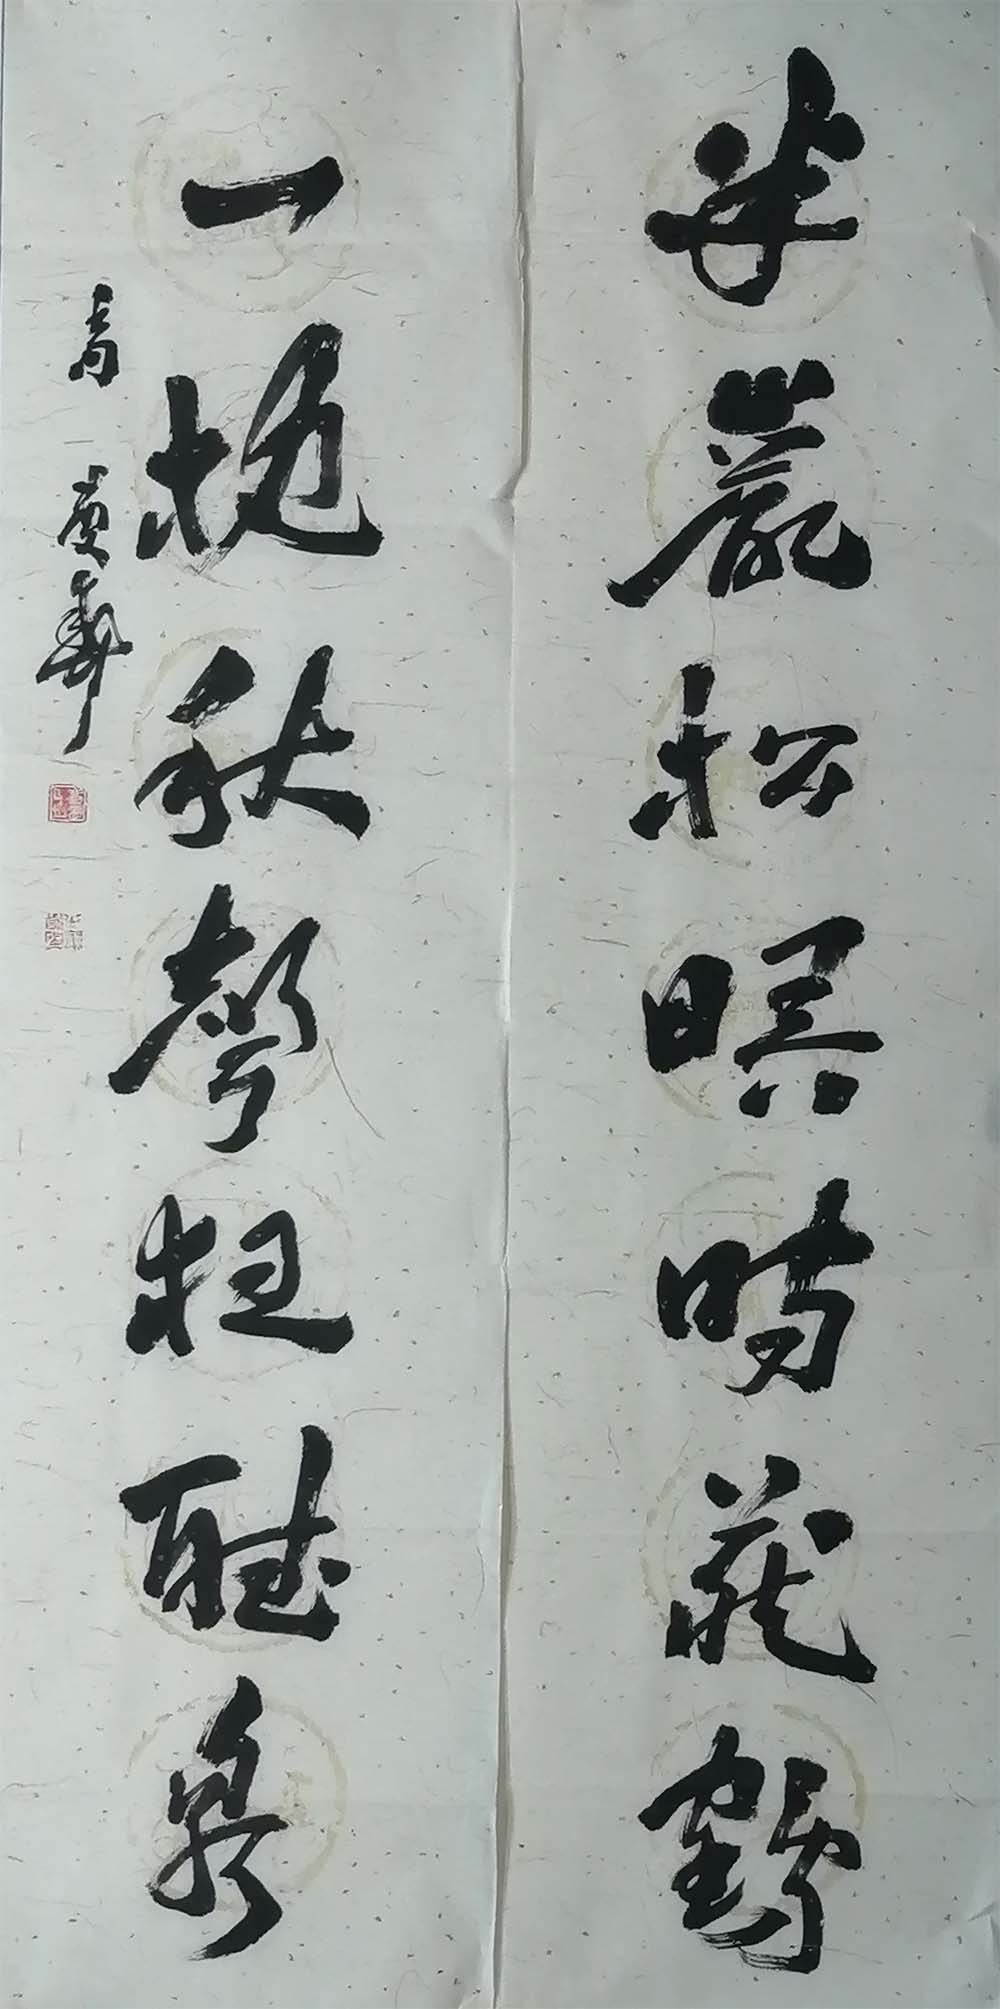 半巖松暝時藏鶴
一枕秋聲夜聽泉